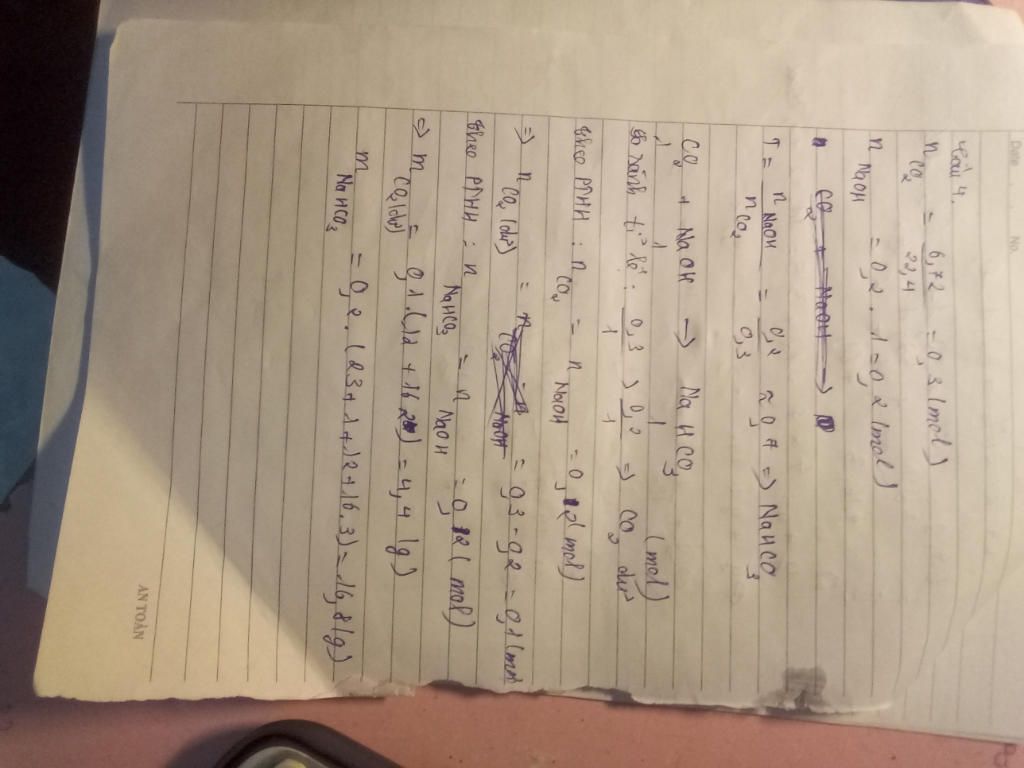 Date No.
Câu 4.
n CO₂ = 6,72 / 22,4 = 0,3 (mol)
n NaOH = 0,2 . 1 = 0,2 (mol)
CO₂ + NaOH →
T = n NaOH / n CO₂ = 0,2 / 0,3 ≈ 0,7 => NaHCO₃
CO₂ + NaOH → NaHCO₃
1 1 1 (mol)
So sánh tỉ số: 0,3 / 1 > 0,2 / 1 => CO₂ dư
theo PTHH : n CO₂ = n NaOH = 0,2 (mol)
=> n CO₂ (dư) = 0,3 - 0,2 = 0,1 (mol
theo PTHH : n NaHCO₃ = n NaOH = 0,2 (mol)
=> m CO₂ (dư) = 0,1 . (12 + 16.2) = 4,4 (g)
m NaHCO₃ = 0,2 . (23 + 1 + 12 + 16.3) = 16,8 (g)
AN TOÀN